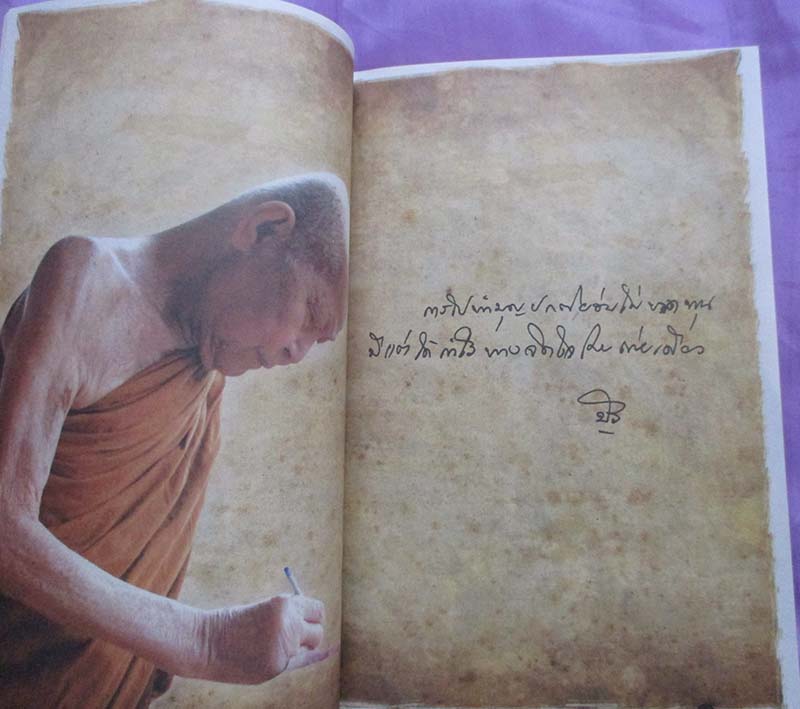 การไปทำบุญ ปกติย่อมไม่ ขาด ทุน
มีแต่ ได้ กำไร ทางจิตใจ โดย ถ่ายเดียว